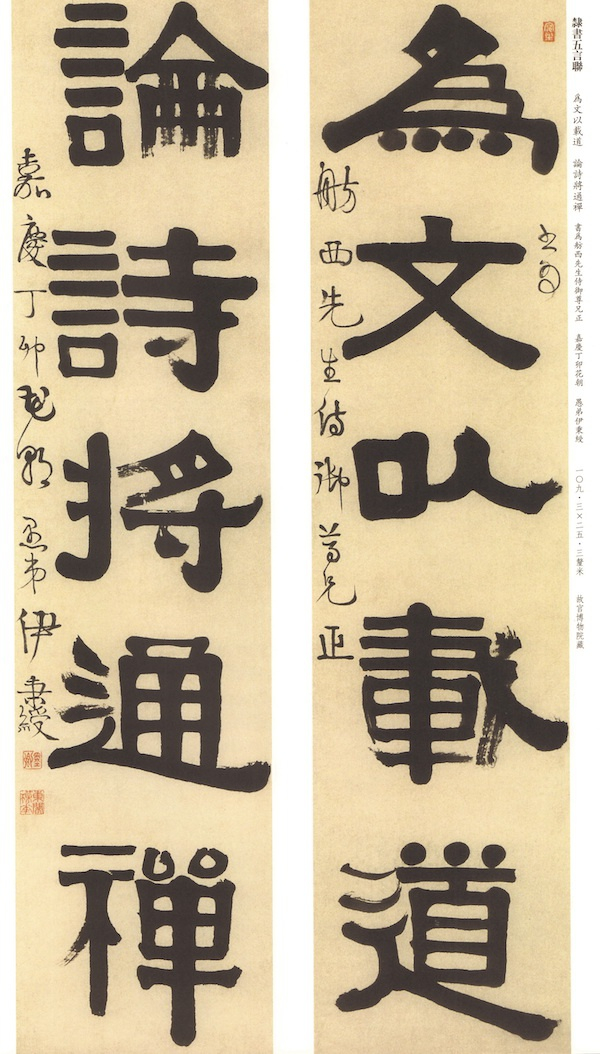 隸書五言聯
爲文以載道 論詩將通禪
書爲舫西先生侍御尊兄正 嘉慶丁卯花朝 愚弟伊秉綬
一〇九·三×二五·三釐米
故宮博物院藏
書爲
爲文以載道
舫西先生侍御尊兄正
論詩將通禪
嘉慶丁卯花朝愚弟伊秉綬